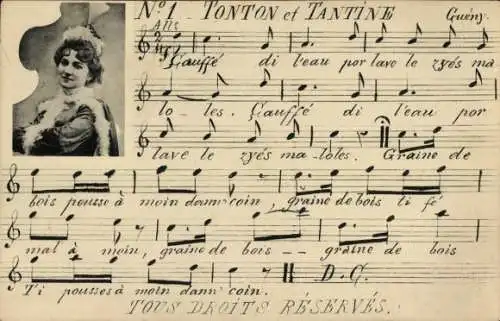 No. 1 TONTON et TANTINE Guény.
Allo
Çauffé di l'eau por lave le zyés ma
lo - les. Çauffé di l'eau por
lave le zyés ma-loles. Graine de
bois pousse à moin dann' coin, graine de bois ti fé
mal à moin, graine de bois -- graine de bois
Ti pousses à moin dann' coin. D.C.
TOUS DROITS RÉSERVÉS.